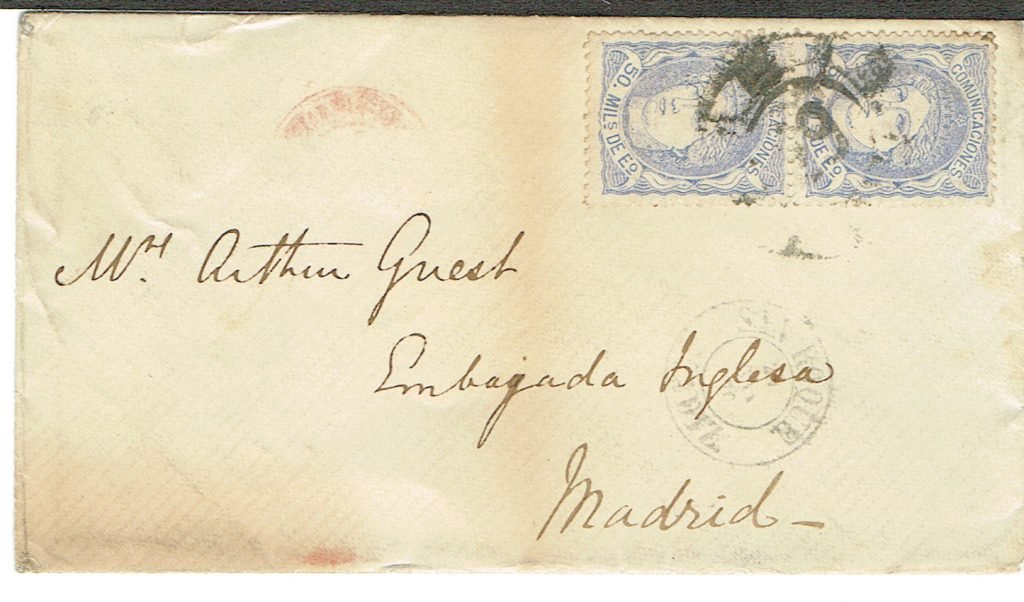 50. MILS DE EO.
COMUNICACIONES
COMUNICACIONES
DE EO.
Mrs. Arthur Guest
Embajada Inglesa
Madrid -
ROQUE